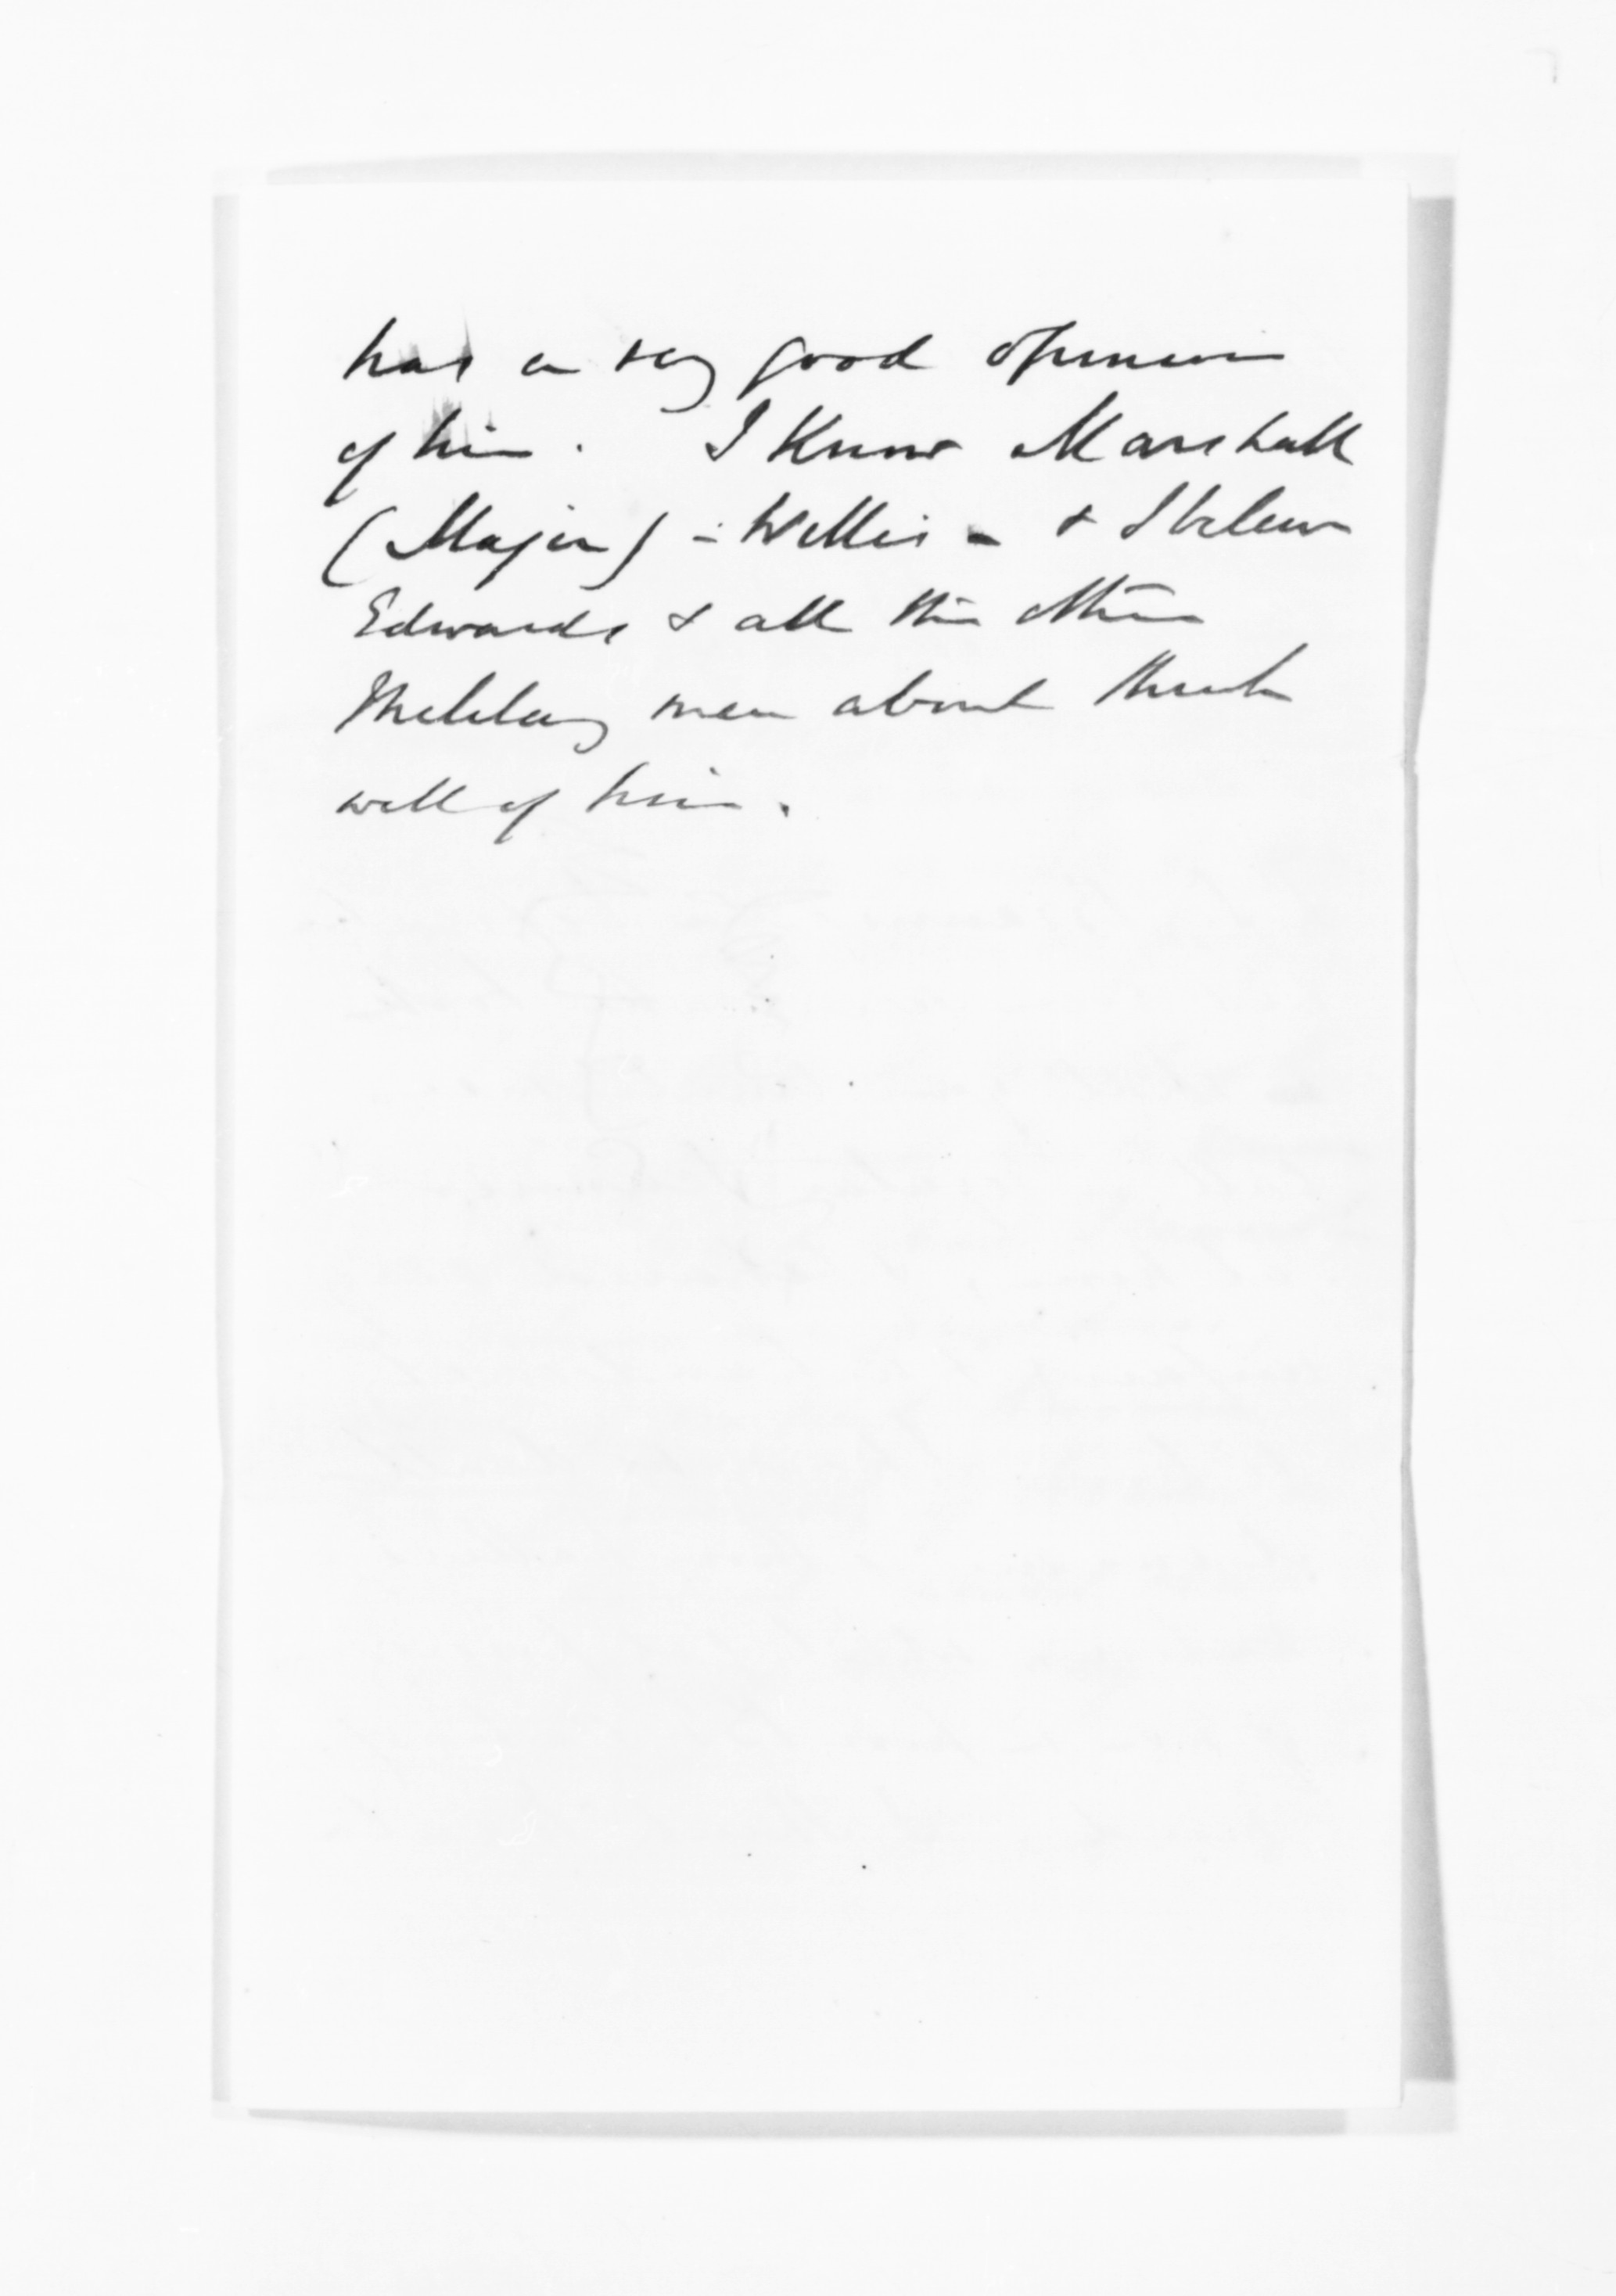 has a very good opinion
of him. I know Marshall
(Major) - Willis - & I believe
Edwards & all the other
Military men about think
well of him.